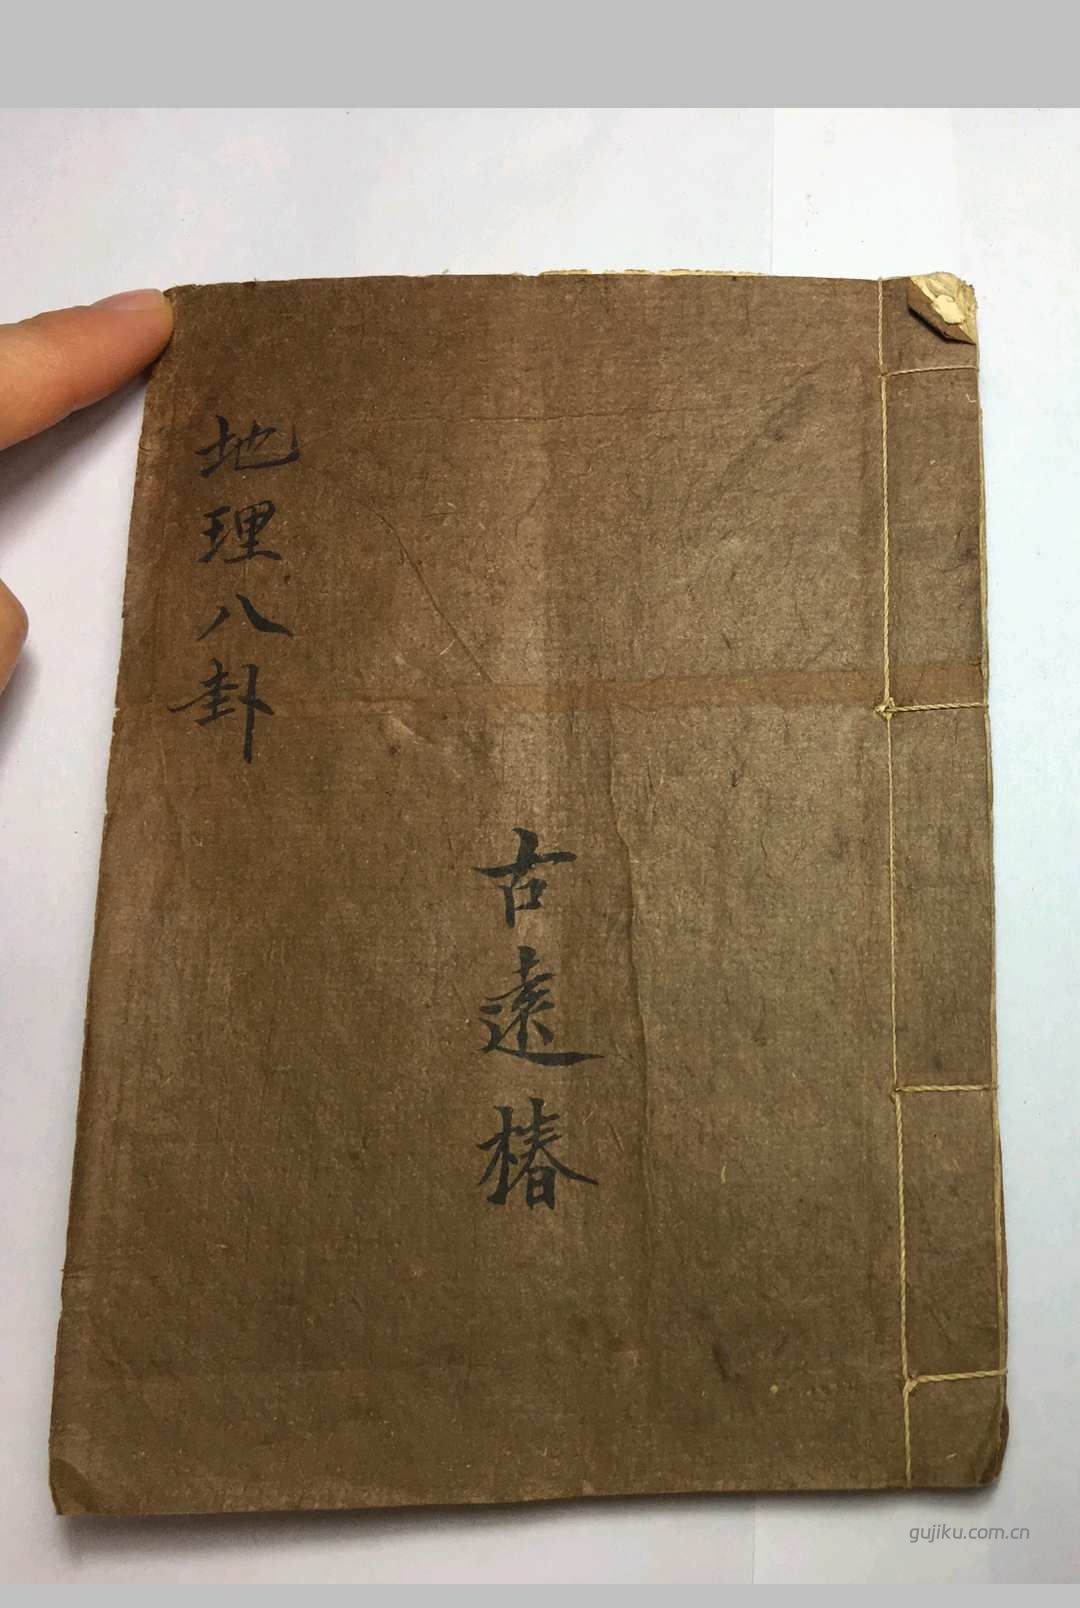 地理八卦
古遠椿
gujiku.com.cn